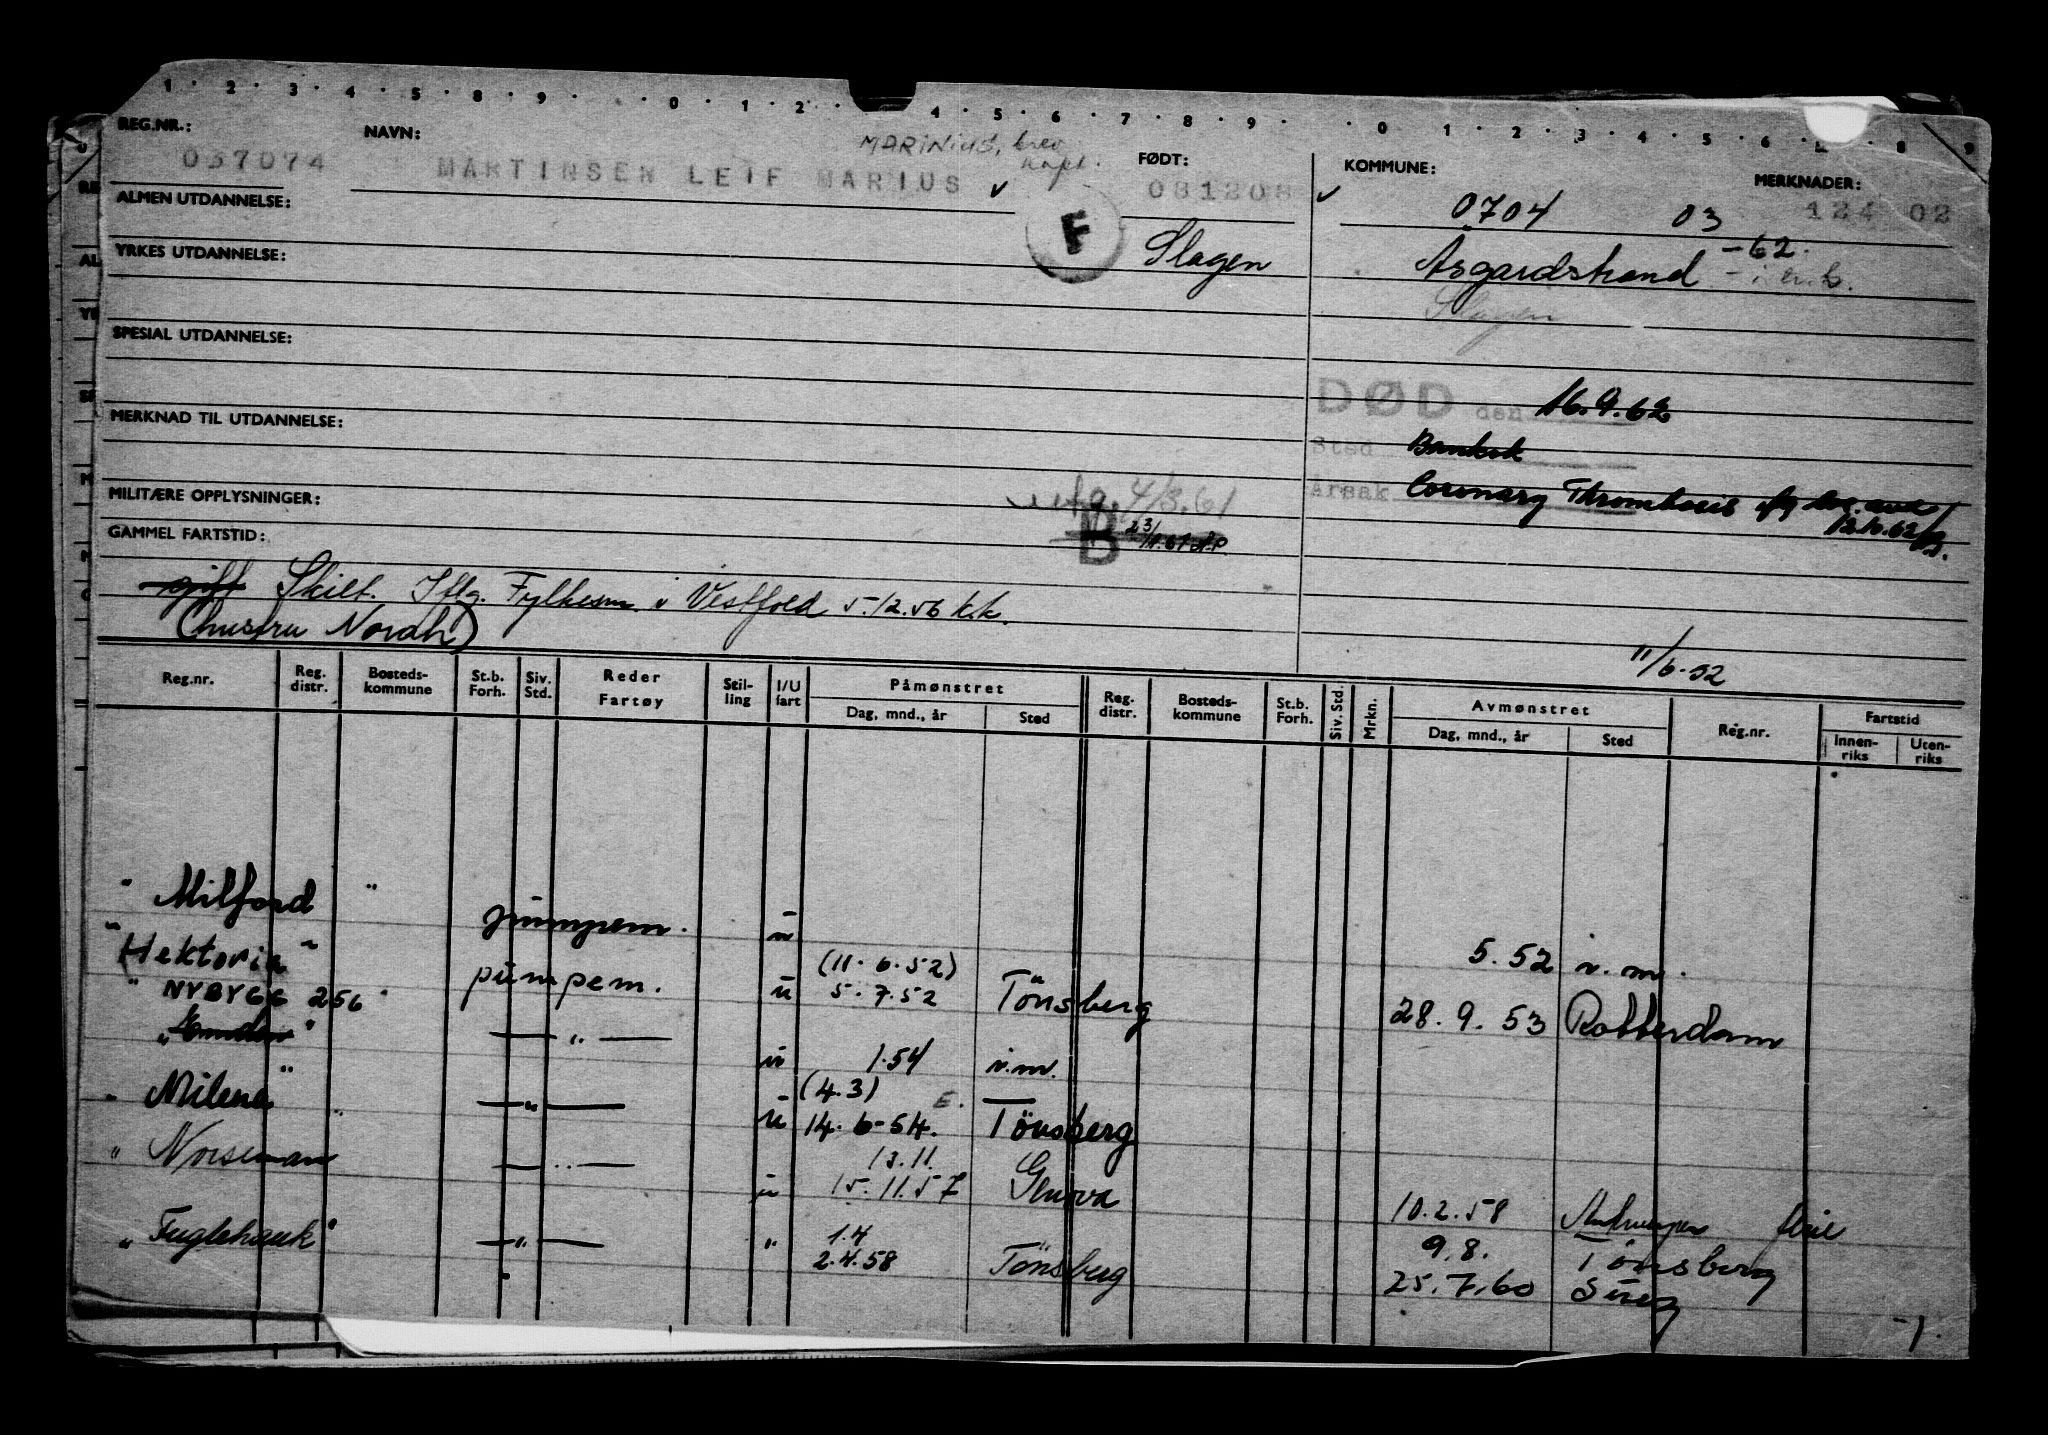 1 · 2 · 3 · 4 · 5 · 8 · 9 · 0 · 1 · 2 · 4 · 5 · 6 · 7 · 8 · 9 · · 0 · 1 · 2 · 3 · 4 · 5 · 6 · 8 · 9
REG.NR.: NAVN: MARINIUS, brev FØDT: KOMMUNE: MERKNADER:
037074 MARTINSEN LEIF MARIUS 081208 0704 03 124 02
ALMEN UTDANNELSE: F Slagen Åsgardstrand -62.
YRKES UTDANNELSE: Slagen
SPESIAL UTDANNELSE:
DØD den 16.9.62
MERKNAD TIL UTDANNELSE: Sted Bankok
MILITÆRE OPPLYSNINGER: utg. 4/3.61 Årsak Coronary Thrombosis
GAMMEL FARTSTID: B
gift Skilt. Iflg. Fylkesm i Vestfold 5.12.56 k.k.
(hustru Norah) 11/6-52
Reg.nr. Reg. distr. Bosteds-kommune St.b. Forh. Siv. Std. Reder Fartøy Stil-ling I/U fart Påmønstret Dag, mnd., år Sted Reg. distr. Bosteds-kommune St.b. Forh. Siv. Std. Mrkn. Avmønstret Dag, mnd., år Sted Reg.nr. Fartstid Innen-riks Uten-riks
" Milford " pumpem. u 5.52 i.m.
"Hektoria" pumpem. u (11.6.52) 5.7.52 Tönsberg 28.9.53 Rotterdam
" NYBYGG 256 " — " — u 1.54 i.m.
" Milena " — " — u (4.3) 14.6-54. E. Tönsberg
" Norseman — " — u 13.11. 15.11.57 Genova 10.2.58 Antwerpen
" Fuglehauk " — " — " 1.4 2.4.58 Tönsberg 9.8. Tönsberg
25.7.60 Suez